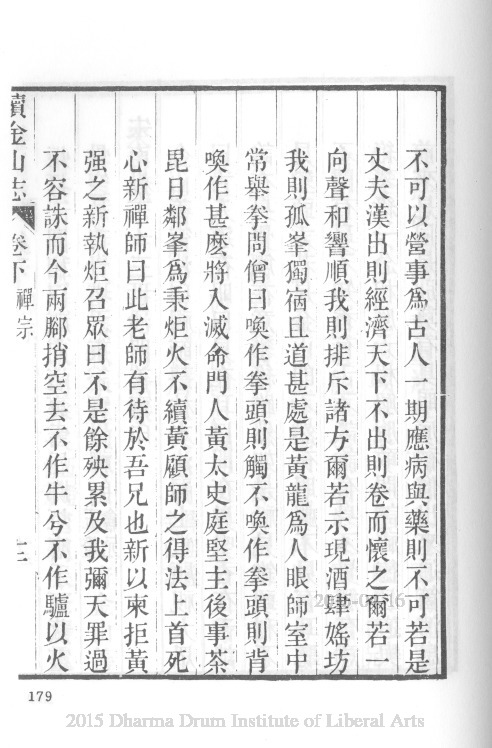 不可以營事爲古人一期應病與藥則不可若是
丈夫漢出則經濟天下不出則卷而懷之爾若一
向聲和響順我則排斥諸方爾若示現酒肆婬坊
我則孤峯獨宿且道甚處是黃龍爲人眼師室中
常舉拳問僧曰喚作拳頭則觸不喚作拳頭則背
喚作甚麽將入滅命門人黃太史庭堅主後事茶
毘日鄰峯爲秉炬火不續黃顧師之得法上首死
心新禪師曰此老師有待於吾兄也新以柬拒黃
强之新執炬召眾曰不是餘殃累及我彌天罪過
不容誅而今兩腳捎空去不作牛兮不作驢以火
續金山志 卷下 禪宗
179
2015 Dharma Drum Institute of Liberal Arts